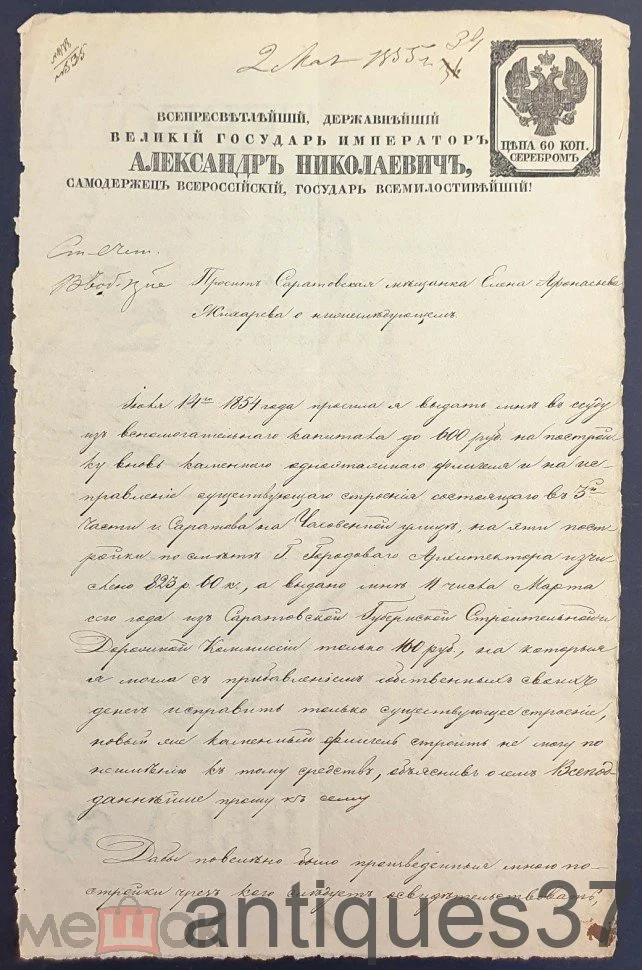 2 Мая 1855 г. 34
№ 535
ЦѢНА 60 КОП.
СЕРЕБРОМЪ
ВСЕПРЕСВѢТЛѢЙШІЙ, ДЕРЖАВНѢЙШІЙ
ВЕЛИКІЙ ГОСУДАРЬ ИМПЕРАТОРЪ
АЛЕКСАНДРЪ НИКОЛАЕВИЧЪ,
САМОДЕРЖЕЦЪ ВСЕРОССІЙСКІЙ, ГОСУДАРЬ ВСЕМИЛОСТИВѢЙШІЙ!
Проситъ Саратовская мѣщанка Елена Афонасьева
Жихарева о нижеслѣдующемъ.
Іюля 14го 1854 года просила я выдать мнѣ въ ссуду
изъ вспомогательнаго капитала до 600 руб. на построй
ку вновь каменнаго одноэтажнаго флигеля и на ис-
правленіе существующаго строенія состоящаго въ 3й
части г. Саратова на Часовенной улицѣ, на эти пост
ройки по смѣтѣ Г. Городоваго Архитектора изчи
слено 823 р. 60 к., а выдано мнѣ 11 числа Марта
сего года изъ Саратовской Губернской Строительной и
Дорожной Коммисіи только 160 руб., на которыя
я могла съ прибавленіемъ собственныхъ своихъ
денегъ исправить только существующее строеніе,
новый же каменный флигель строить не могу по
неимѣнію къ тому средствъ, объяснивъ о семъ Всепод
даннѣйше прошу къ сему
Дабы повелѣно было произведенныя мною по-
стройки чрезъ кого слѣдуетъ освидѣтельствовать,
мешок
antiques37